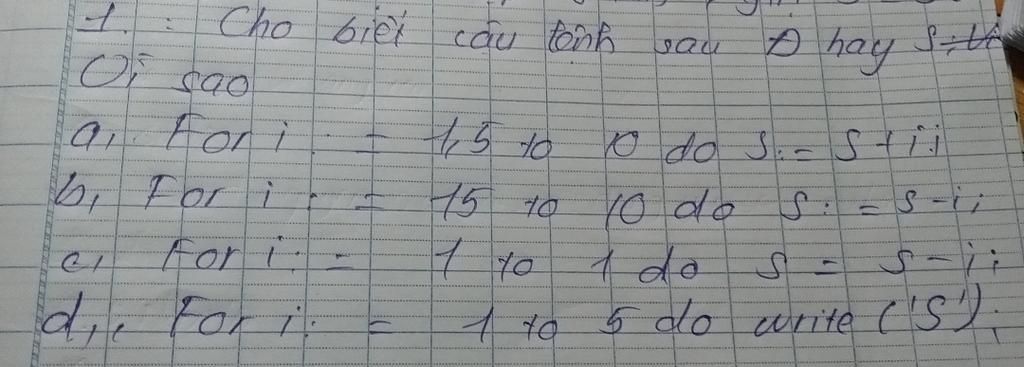 1. : Cho biết câu lệnh sau Đ hay S
Vì sao
a, For i := 1,5 to 10 do S:= S + i;
b, For i := 15 to 10 do S := S - i;
c, For i := 1 to 1 do S = S - i;
d, For i := 1 to 5 do write ('S');